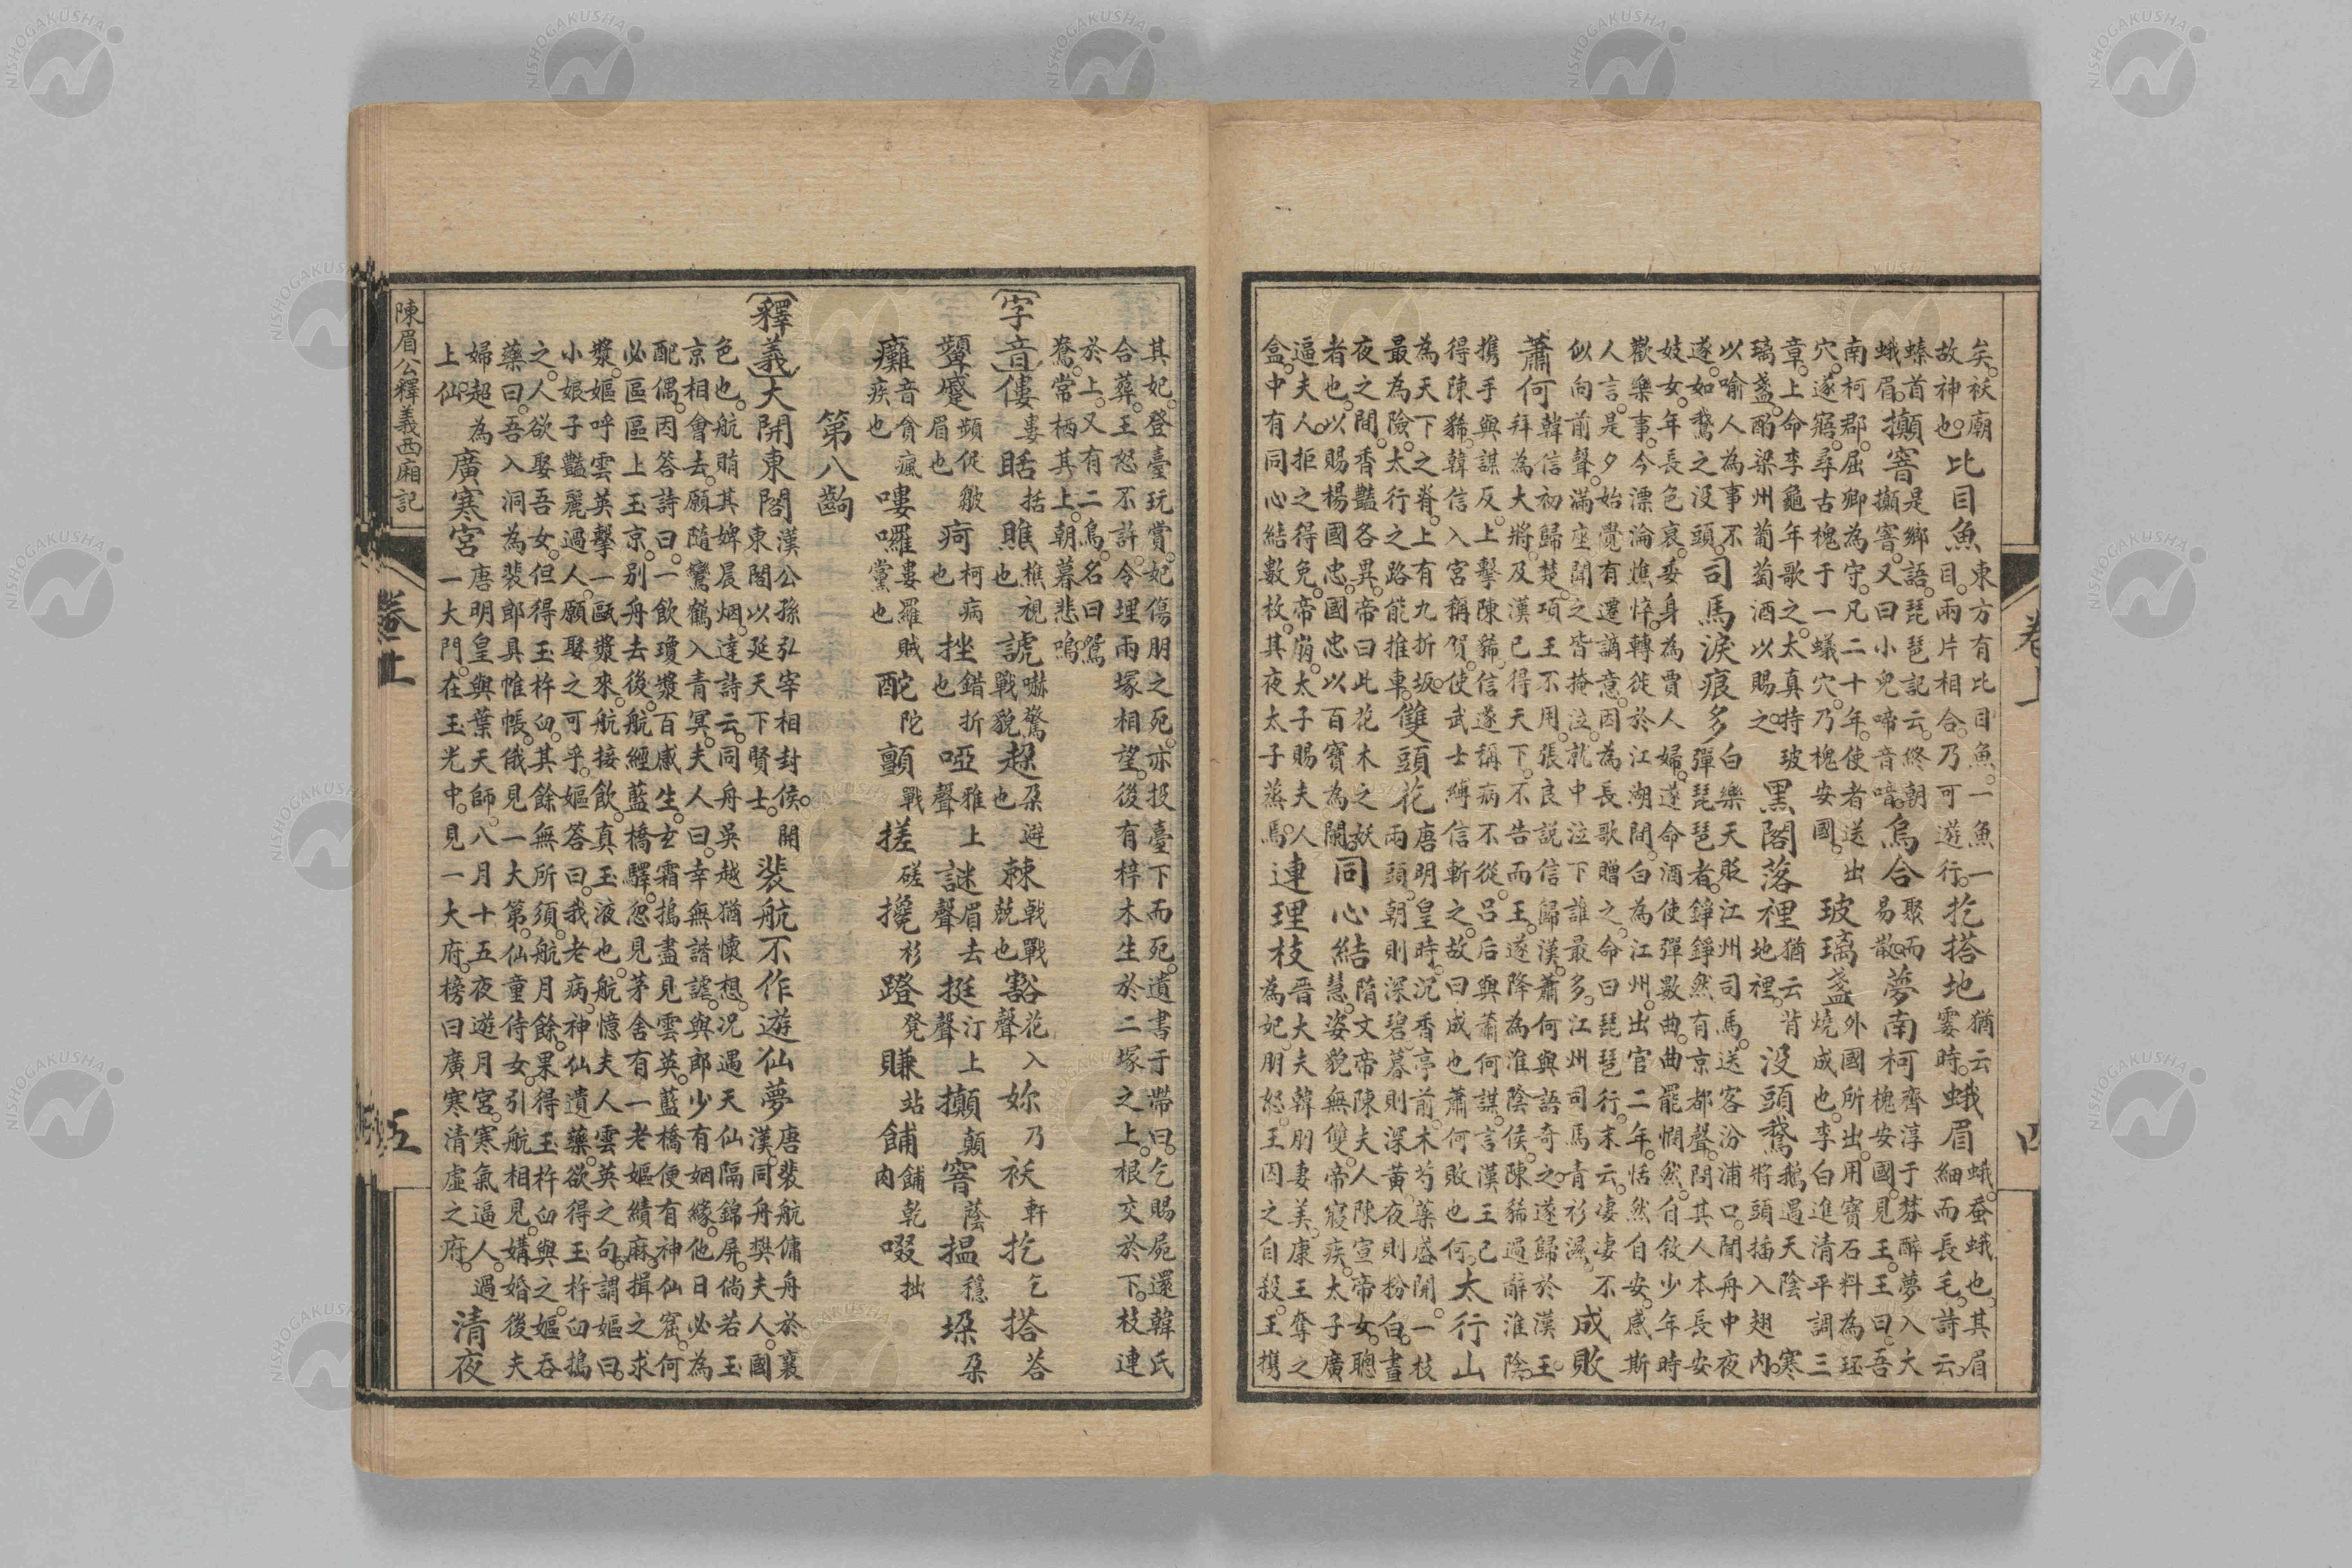 矣。祆廟
故神也。
比目魚
東方有比目魚。一魚一
目。兩片相合。乃可遊行。
扢搭地
猶云
霎時。
蛾眉
蛾。蚕蛾也。其眉
細而長。毛詩云。
螓首
蛾眉。
攧窨
是鄉語。琵琶記云。終朝
攧窨。又曰小兒啼音喑。
烏合
聚而
易散。
夢南柯
齊淳于棼醉夢入大
槐安國。見王。王曰。吾
南柯郡。屈卿為守。凡二十年。使者送出
穴。遂寤。尋古槐于一蟻穴。乃槐安國。
玻璃盞
外國所出。用寶石料為珏
燒成也。李白進清平調三
章。上命李龜年歌之。太真持玻
璃盞。酌梁州葡萄酒以賜之。
黑閣落裡
猶云背
地裡。
没頭鵞
鵝遇天陰寒
將頭插入翅内。
以喻人為事不
遂。如鵞之没頭。
司馬淚痕多
白樂天貶江州司馬。送客汾浦口。聞舟中夜
彈琵琶者。錚錚然有京都聲。問其人。本長安
妓女。年長色衰。委身為賈人婦。遂命酒使彈數曲。曲罷憫然。自敘少年時
歡樂事。今漂淪憔悴。轉徙於江湖間。白為江州。出官二年。恬然自安。感斯
人言。是夕始覺有遷謫意。因為長歌贈之。命曰琵琶行。末云。凄凄不
似向前聲。滿座聞之皆掩泣。就中泣下誰最多。江州司馬青衫濕。
成敗
蕭何
韓信初歸楚。項王不用。張良説信歸漢。蕭何與語奇之。遂歸於漢王。
拜為大將。及漢已得天下。不告而王。遂降為淮陰侯。陳豨過辭淮陰。
携手與謀反。上擊陳豨。信遂稱病不從。呂后與蕭何謀。言漢王已
得陳豨。韓信入宮稱賀。使武士縛信斬之。故曰成也蕭何敗也何。
太行山
為天下之脊。上有九折坂。
最為險。太行之路能推車。
雙頭花
唐明皇時。沉香亭前木芍藥盛開。一枝
兩頭。朝則深碧。暮則深黃。夜則粉白。晝
夜之間。香豔各異。帝曰。此花木之妖
者也。以賜楊國忠。國忠以百寶為闌。
同心結
隋文帝陳夫人。陳宣帝女。聰
慧。姿貌無雙。帝寢疾。太子廣
逼夫人。拒之得免。帝崩。太子賜夫人
盒。中有同心結數枚。其夜太子蒸焉。
連理枝
晉大夫韓朋妻美。康王奪之
為妃。朋怒。王囚之。自殺。王携
卷上
四
其妃。登臺玩賞。妃傷朋之死。亦投臺下而死。遺書于帶曰。乞賜屍還韓氏
合葬。王怒不許。令埋兩塚相望。後有梓木生於二塚之上。根交於下。枝連
於上。又有二鳥。名曰鴛
鴦。常栖其上。朝暮悲鳴。
字音
僂婁 䀨括 瞧樵視也 諕嚇驚戰貌 趓朶避也 棘戟戰兢也 豁花入聲 妳乃 祆軒 扢乞 搭荅
顰蹙頻促皺眉也 疴柯病也 挫錯折也 啞雅上聲 謎眉去聲 挺汀上聲 攧顛 窨蔭 揾穩 垛朶
癱音貪瘋疾也 嘍囉婁羅賊黨也 酡陀 顫戰 搓磋 攙衫 蹬凳 賺站 餔餔乾肉 啜拙
第八齣
釋義
大開東閣
漢公孫弘宰相封侯。開
東閣以延天下賢士。
裴航不作遊仙夢
唐裴航傭舟於襄
漢。同舟樊夫人。國
色也。航賄其婢晨烟。達詩云。同舟吳越猶懷想。况遇天仙隔錦屏。倘若玉
京相會去。願隨鸞鶴入青冥。夫人曰。幸無諧謔。與郎少有姻緣。他日必為
配偶。因答詩曰。一飲瓊漿百感生。玄霜搗盡見雲英。藍橋便有神仙窟。何
必區區上玉京。別舟去後。航經藍橋驛。忽見茅舍有一老嫗績麻。揖之求
漿。嫗呼雲英擎一甌漿來。航接飲。真玉液也。航憶夫人雲英之句。謂嫗曰。
小娘子豔麗過人。願娶之可乎。嫗答曰。我老病。神仙遺藥。欲得玉杵臼搗
之。人欲娶吾女。但得玉杵臼。其餘無所須。航月餘。果得玉杵臼與之。嫗吞
藥曰。吾入洞為裴郎具帷帳。俄見一大第。仙童侍女。引航相見。媾婚後。夫
婦超為
上仙。
廣寒宮
唐明皇與葉天師。八月十五夜遊月宮。寒氣逼人。過
一大門。在玉光中。見一大府。榜曰廣寒清虛之府。
清夜
陳眉公釋義西廂記
卷上
五
NISHOGAKUSHA